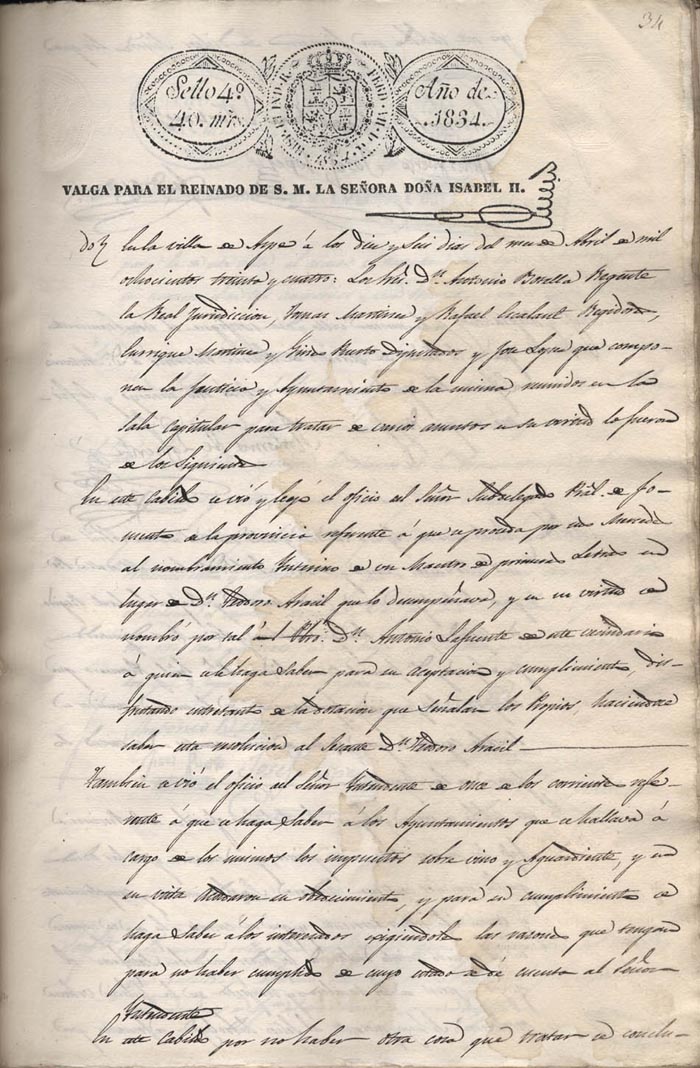 34
Sello 4º
40. mrs.
HISP. ET IND. R. FERD. VII D. G.
1834
Año de
1834.
VALGA PARA EL REINADO DE S. M. LA SEÑORA DOÑA ISABEL II.
En la villa de Aspe á los diez y seis dias del mes de Abril de mil
ochocientos treinta y cuatro: Los Sres. Dn. Antonio Botella Regente
la Real Jurisdiccion, Tomas Martinez y Rafael Regidores,
Enrrique Martinez y Puerto Diputados y Jose que compo-
nen la Justicia y Ayuntamiento de la misma, reunidos en la
sala capitular para tratar de varios asuntos en su virtud lo fueron
de los siguientes
En este Cabildo se vió y leyó el oficio del Señor Subdelegado Rl. de fo-
mento de la provincia referente á que se proceda por sus Mercedes
al nombramiento interino de un Maestro de primeras Letras en
lugar de Dn. Teodoro Aracil que lo desempeñava, y en su virtud se
nombró por tal á Dn. Antonio Lafuente de este vecindario
á quien se le haga saber para su aceptacion y cumplimiento, dis-
frutando entretanto de la dotacion que señalan los Propios, haciendose
saber esta resolucion al Dn. Teodoro Aracil
Tambien se vió el oficio del Señor Intendente de once de los corrientes refe-
rente á que se haga saber á los Ayuntamientos que se hallava á
cargo de los mismos los impuestos sobre vino y Aguardiente, y en
su vista acordaron su obedecimiento, y para su cumplimiento se
haga saber á los interesados exigiendole las razones que tengan
para no haber cumplido de cuyo se dé cuenta al Señor
Intendente
En este Cabildo por no haber otra cosa que tratar se conclu-